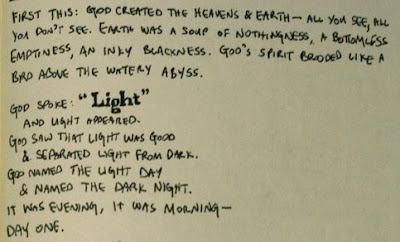 FIRST THIS: GOD CREATED THE HEAVENS & EARTH — ALL YOU SEE, ALL
YOU DON'T SEE. EARTH WAS A SOUP OF NOTHINGNESS, A BOTTOMLESS
EMPTINESS, AN INKY BLACKNESS. GOD'S SPIRIT BROODED LIKE A
BIRD ABOVE THE WATERY ABYSS.
GOD SPOKE: "Light"
AND LIGHT APPEARED.
GOD SAW THAT LIGHT WAS GOOD
& SEPARATED LIGHT FROM DARK.
GOD NAMED THE LIGHT DAY
& NAMED THE DARK NIGHT.
IT WAS EVENING, IT WAS MORNING —
DAY ONE.